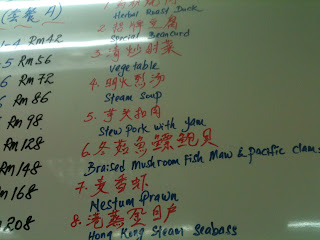 (套餐 A)
Rm 42
Rm 56
Rm 72
Rm 86
Rm 98
Rm 128
Rm 148
Rm 168
Rm 208
Herbal Roast Duck
2. 招牌豆腐
Special Beancurd
3. 清炒时菜
Vegetable
4. 明火烈汤
Steam Soup
5. 芋头扣肉
Stew Pork with Yam
6. 冬菇鱼鳔鲍贝
Braised Mushroom Fish Maw & pacific clams
7. 麦香虾
Nestum Prawn
8. 港蒸
Hong Kong Steam Seabass